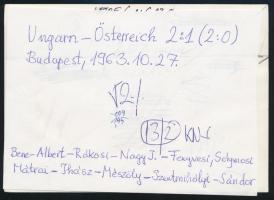 Ungarn – Österreich 2:1 (2:0)
Budapest, 1963.10.27.
√2.-
132 KN
Bene – Albert – Rákosi – Nagy J. – Fenyvesi, Solymosi
Mátrai – Ihász – Mészöly – Szentmihályi – Sándor